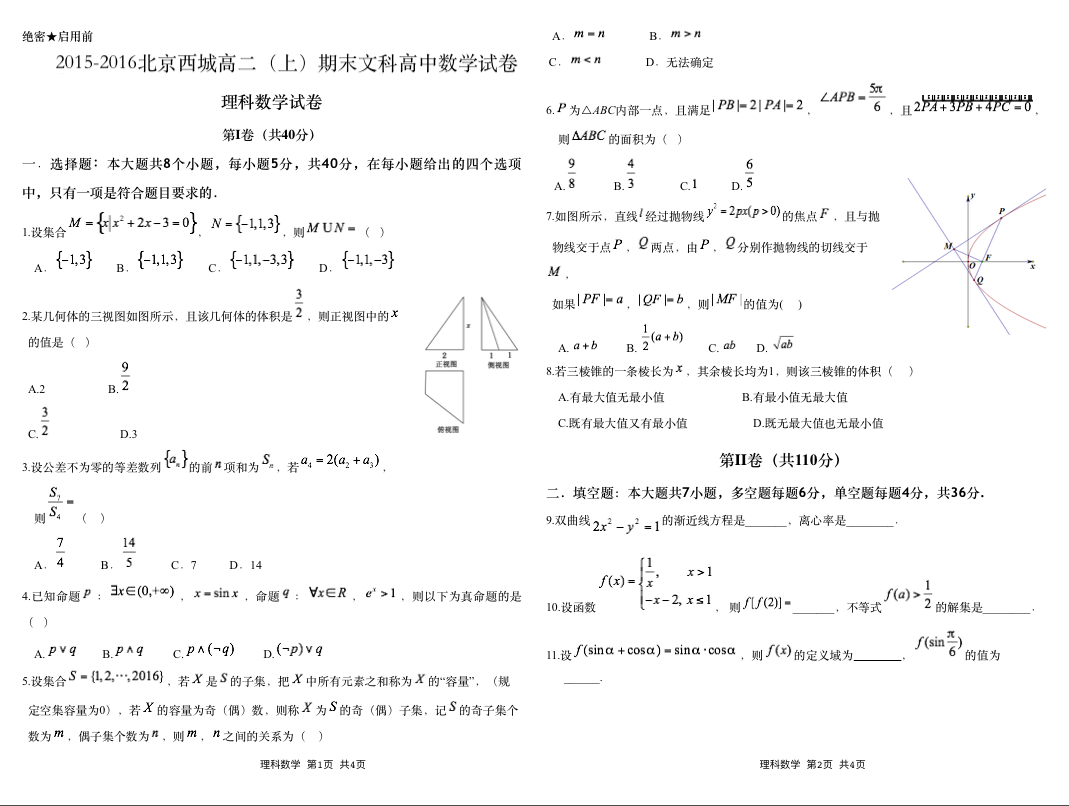 绝密★启用前
2015-2016北京西城高二（上）期末文科高中数学试卷
理科数学试卷
第Ⅰ卷（共40分）
一．选择题：本大题共8个小题，每小题5分，共40分，在每小题给出的四个选项
中，只有一项是符合题目要求的．
1.设集合 M = {x|x² + 2x − 3 = 0}，N = {−1,1,3}，则 M ∪ N = （ ）
A．{−1,3} B．{−1,1,3} C．{−1,1,−3,3} D．{−1,1,−3}
2.某几何体的三视图如图所示，且该几何体的体积是 3/2 ，则正视图中的 x
的值是（ ）
A.2 B. 9/2
C. 3/2 D.3
x
2 1 1
正视图 侧视图
俯视图
3.设公差不为零的等差数列 {aₙ} 的前 n 项和为 Sₙ，若 a₄ = 2(a₂ + a₃)，
则 S₇/S₄ = （ ）
A．7/4 B．14/5 C．7 D．14
4.已知命题 p ：∃x∈(0,+∞)，x = sin x，命题 q ：∀x∈R，eˣ > 1，则以下为真命题的是
（ ）
A. p∨q B. p∧q C. p∧(¬q) D. (¬p)∨q
5.设集合 S = {1,2,⋯,2016}，若 X 是 S 的子集，把 X 中所有元素之和称为 X 的“容量”，（规
定空集容量为0），若 X 的容量为奇（偶）数，则称 X 为 S 的奇（偶）子集，记 S 的奇子集个
数为 m，偶子集个数为 n，则 m，n 之间的关系为（ ）
理科数学 第1页 共4页
A．m = n B．m > n
C．m < n D．无法确定
6. P 为△ABC内部一点，且满足 |PB|= 2|PA|= 2，∠APB = 5π/6，且 2PA + 3PB + 4PC = 0，
则 ΔABC 的面积为（ ）
A. 9/8 B. 4/3 C.1 D. 6/5
7.如图所示，直线 l 经过抛物线 y² = 2px(p > 0) 的焦点 F ，且与抛
物线交于点 P ，Q 两点，由 P ，Q 分别作抛物线的切线交于
M ，
如果 |PF|= a，|QF|= b，则 |MF| 的值为( )
A. a+b B. 1/2(a+b) C. ab D. √ab
y
P
M
O F x
Q
8.若三棱锥的一条棱长为 x ，其余棱长均为1，则该三棱锥的体积（ ）
A.有最大值无最小值 B.有最小值无最大值
C.既有最大值又有最小值 D.既无最大值也无最小值
第Ⅱ卷（共110分）
二．填空题：本大题共7小题，多空题每题6分，单空题每题4分，共36分．
9.双曲线 2x² − y² = 1 的渐近线方程是_______，离心率是________．
10.设函数 f(x) = { 1/x, x > 1
−x − 2, x ≤ 1 ，则 f[f(2)] = _______，不等式 f(a) > 1/2 的解集是________．
11.设 f(sinα + cosα) = sinα·cosα ，则 f(x) 的定义域为________，f(sin π/6) 的值为
______.
理科数学 第2页 共4页